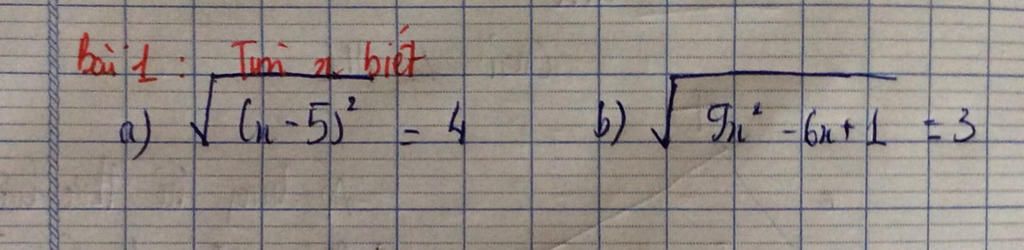 Bài 1 : Tìm x biết
a) √(x - 5)² = 4 b) √9x² - 6x + 1 = 3